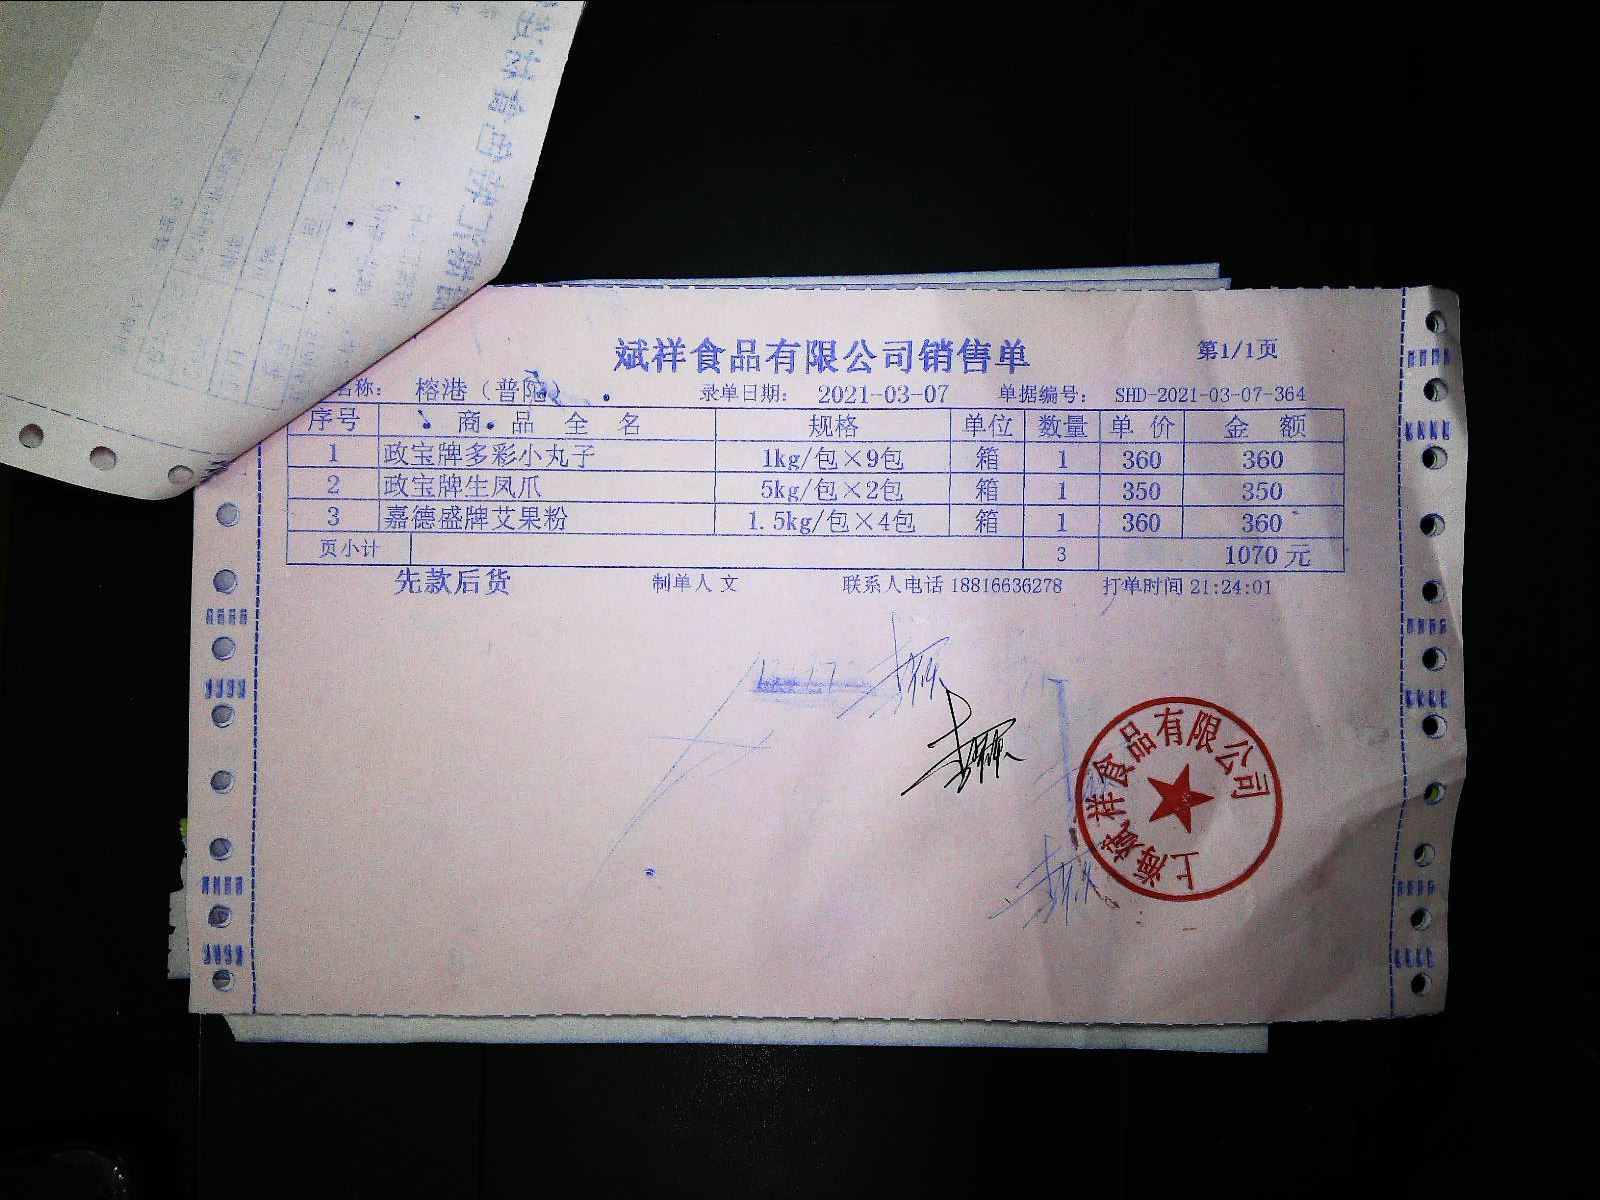 斌祥食品有限公司销售单 第1/1页
名称： 榕港（普陀） 录单日期： 2021-03-07 单据编号： SHD-2021-03-07-364
序号 商品全名 规格 单位 数量 单价 金额
1 政宝牌多彩小丸子 1kg/包×9包 箱 1 360 360
2 政宝牌生凤爪 5kg/包×2包 箱 1 350 350
3 嘉德盛牌艾果粉 1.5kg/包×4包 箱 1 360 360
页小计 3 1070 元
先款后货 制单人 文 联系人电话 18816636278 打单时间 21:24:01
上海斌祥食品有限公司